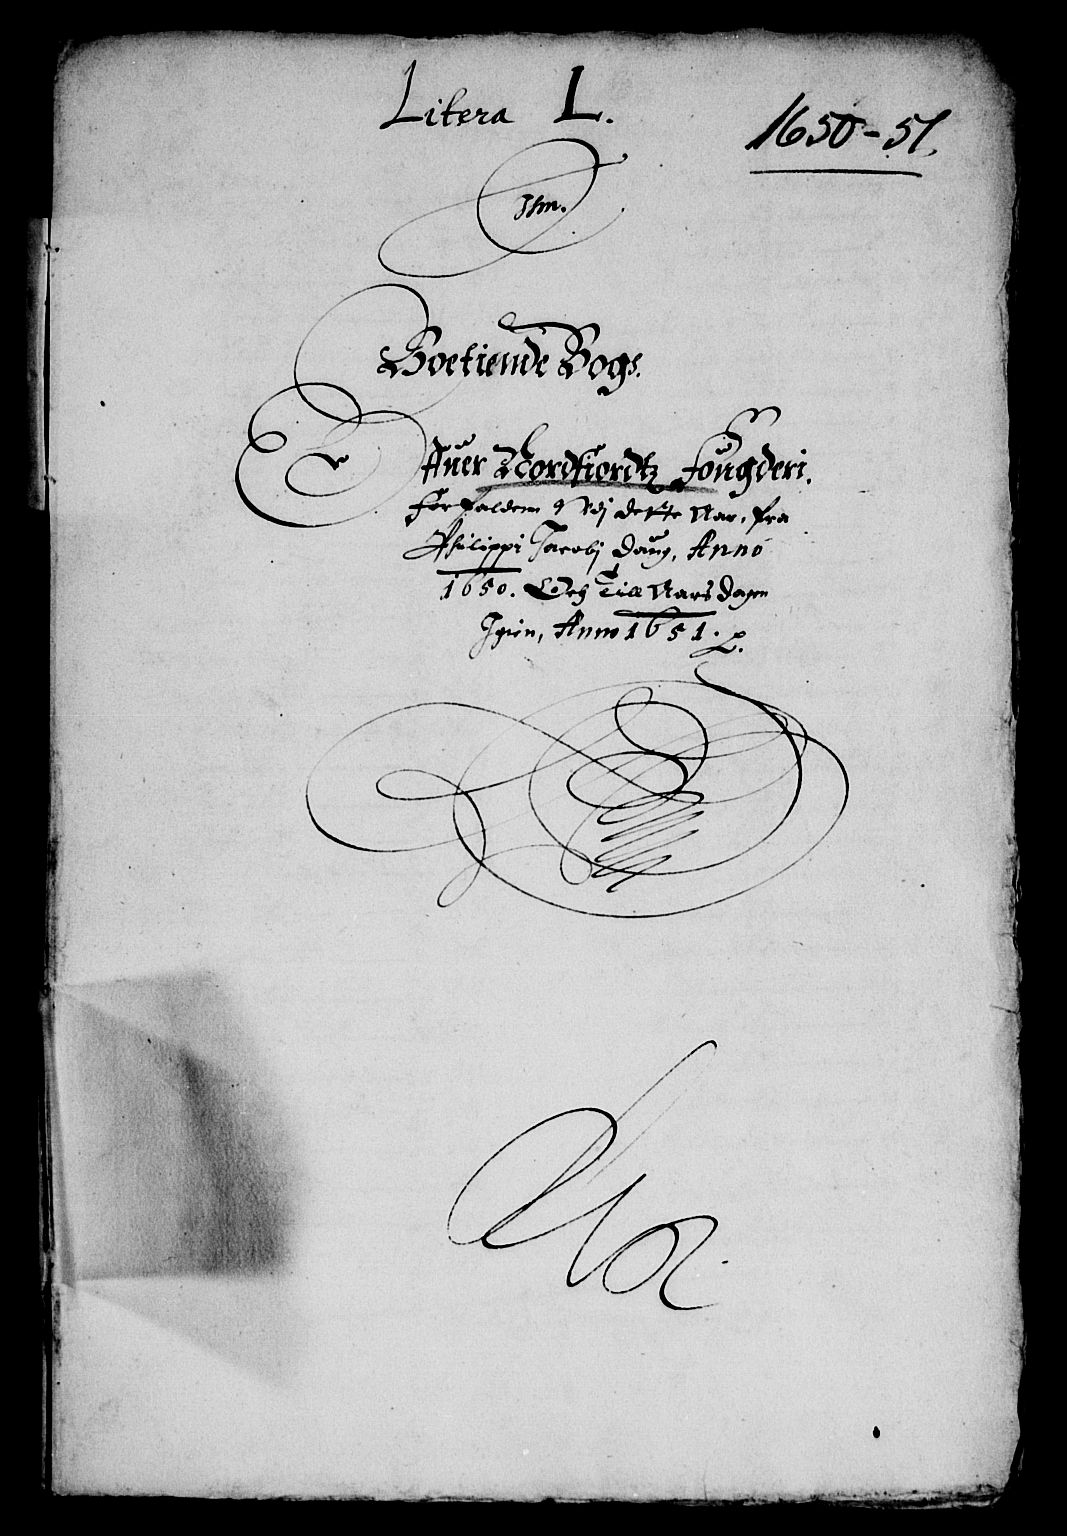 Litera L.
1650-51.
Jhm.
Qoetiende Bogs.
Offuer Nordfiordtz fougderi,
forfalden Vdj dette Aar, fra
Philippi Jacobi daug, Anno
1650. Och Till Aars dagen
Igien, Anno 1651.